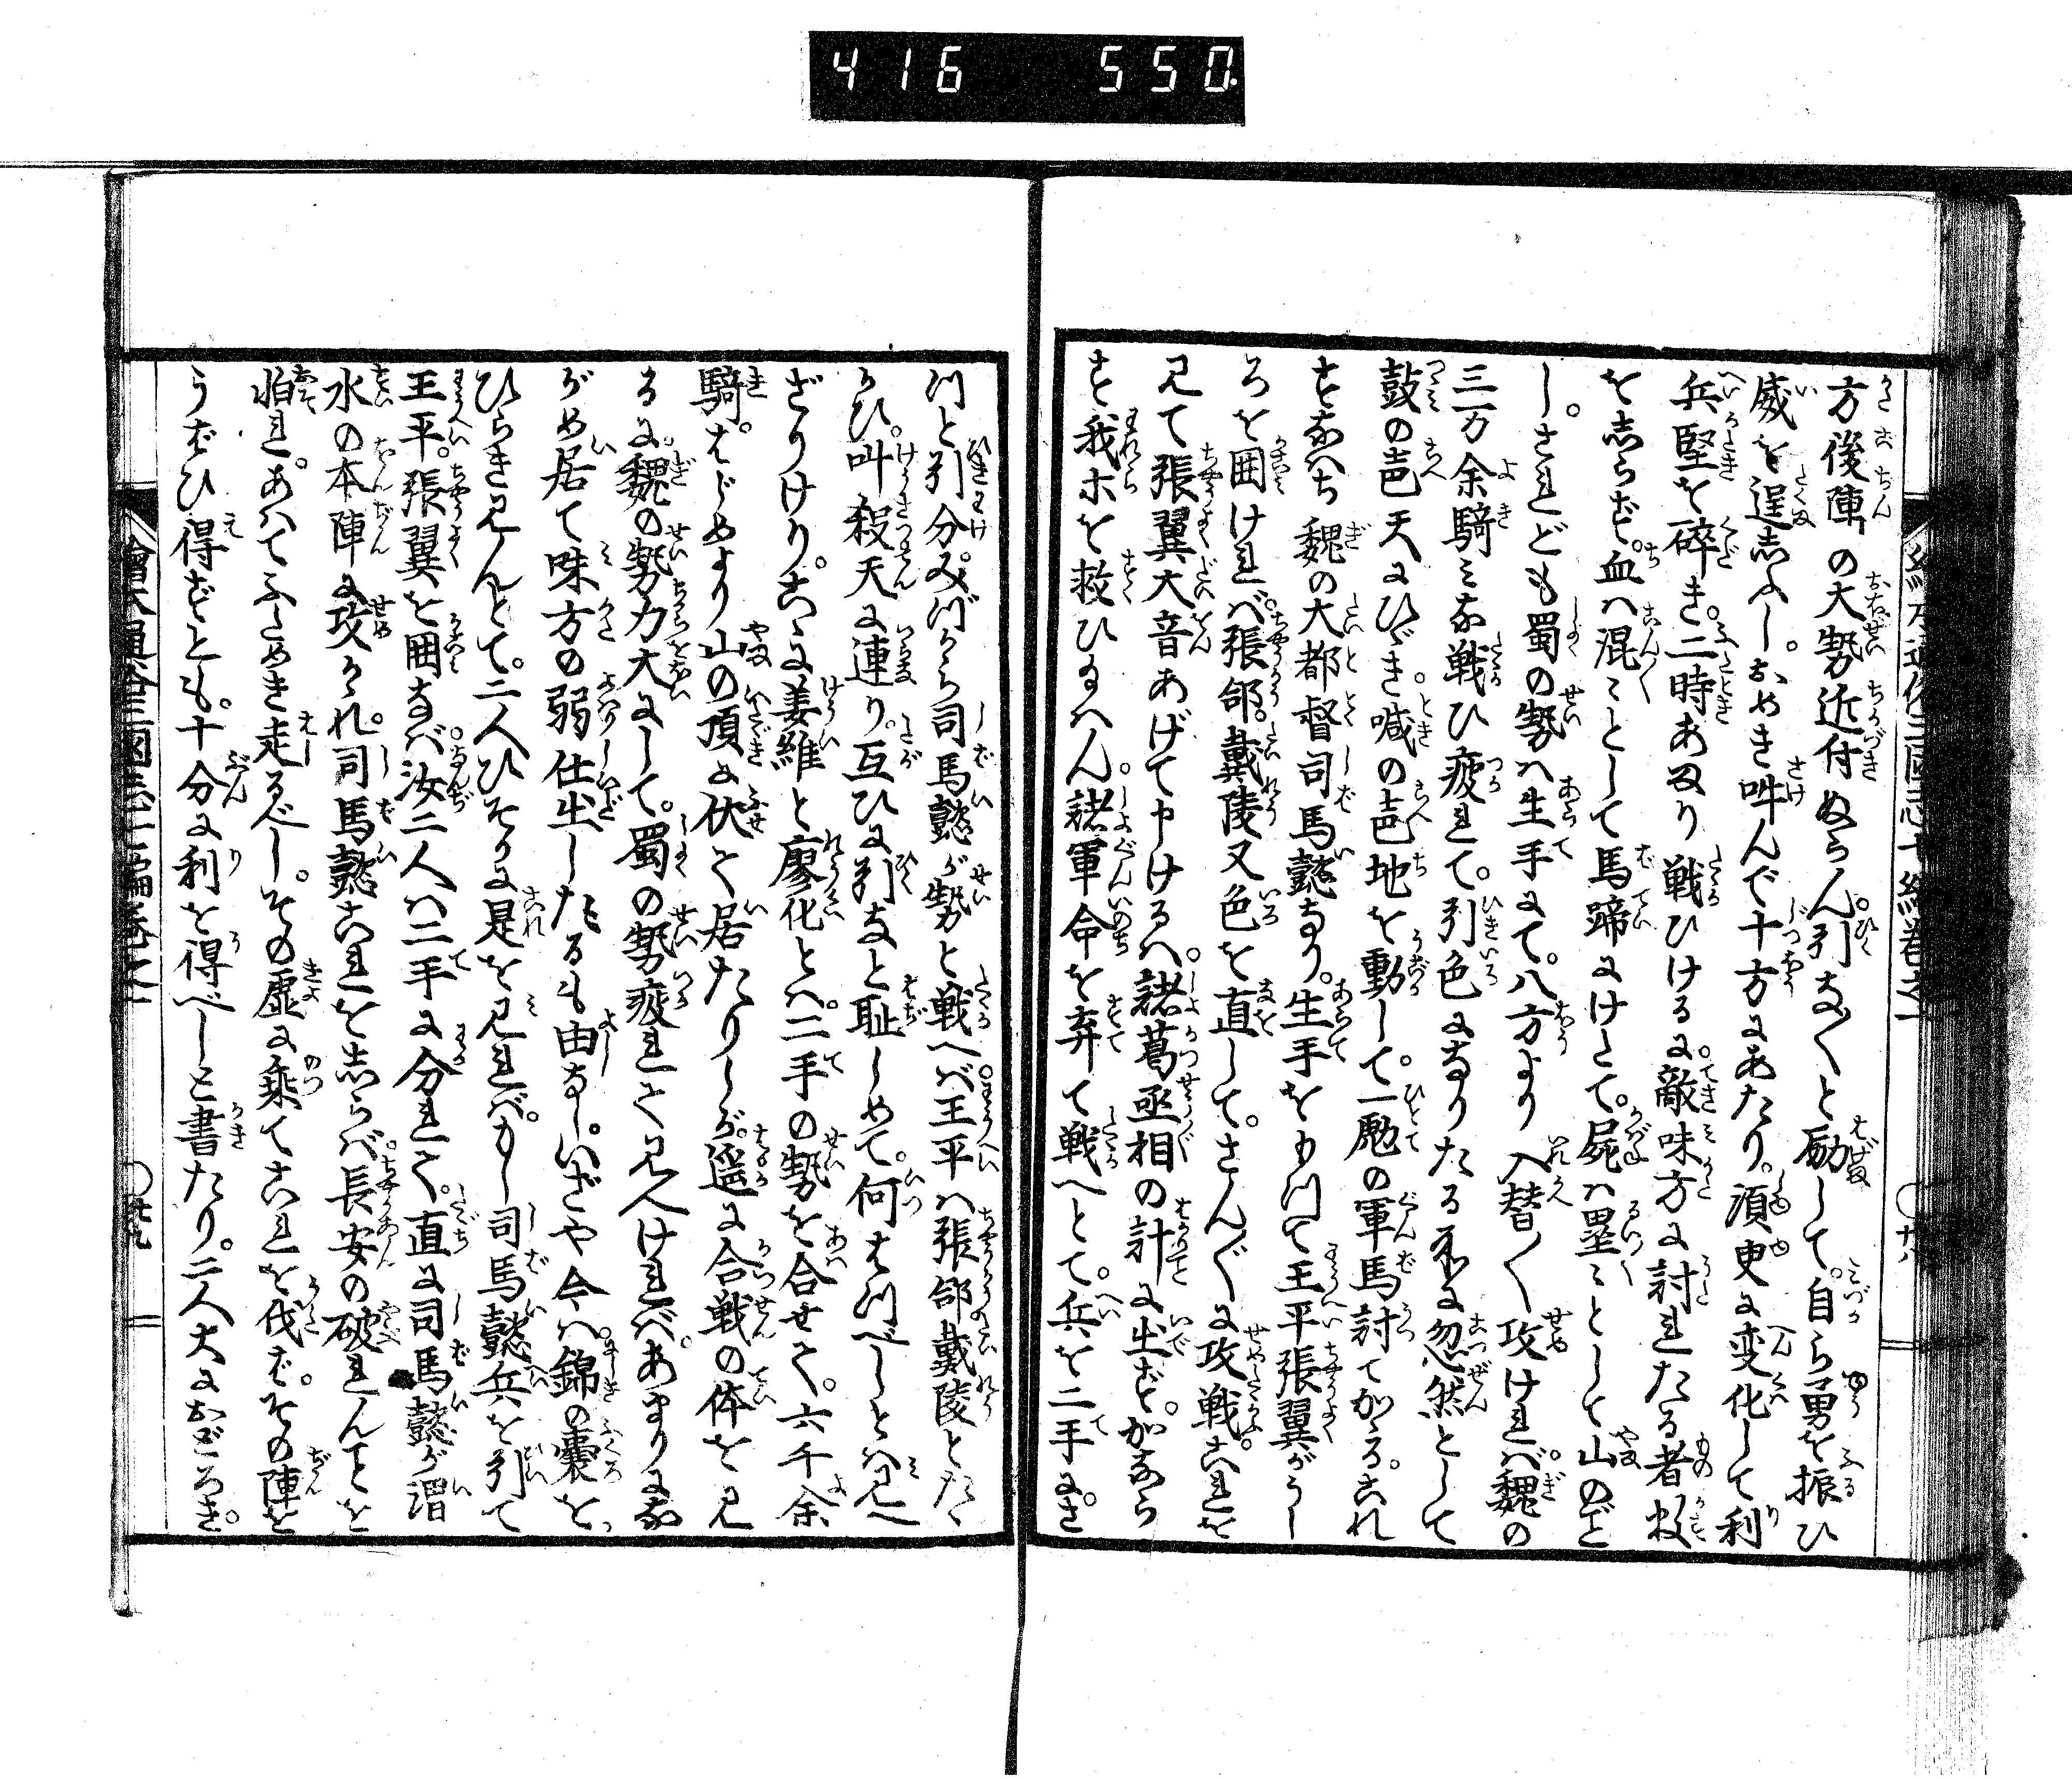 416 550
方後陣の大勢近付ぬらん引な〱と励して。自ら勇を振ひ
威を逞志ふし。おめき叫んで十方にあたり。須臾に変化して利
兵堅を砕き。二時あまり戦ひけるに。敵味方に討れたる者数
を志らず。血ハ混〻として馬蹄にけとて。屍ハ塁〻として山のご
し。されども蜀の勢ハ生手にて。八方より入替〱攻けれバ。魏の
三万余騎ミな戦ひ疲れて。引色になりたる所に忽然として
鼓の声天にひゞき。喊の声地を動して。一彪の軍馬討てかゝる。これ
すなハち魏の大都督司馬懿なり。生手をもつて王平張翼がうし
ろを囲けれバ。張郃。戴陵又色を直して。さん〲に攻戦。これを
見て張翼大音あげて申けるハ。諸葛亟相の計に出ず。かなら
ず我ホを救ひ給ハん。諸軍命を弃て戦へとて。兵を二手に。さ
つと引分みづから司馬懿が勢と戦へバ。王平ハ張郃戴陵とたゝ
かひ。叫殺天に連り。互ひに引なと恥しめて。何はつべしとハ見へ
ざりけり。こゝに姜維と廖化とハ。二手の勢を合せて。六千余
騎。はじめより山の頂に伏て居たりしが。遥に合戦の体を見
るに。魏の勢力大にして。蜀の勢疲れて見へけれバ。あまりにな
がめ居て味方の弱仕出したるも由なし。いざや今ハ。錦の嚢を
ひらき見んとて。二人ひそかに是を見れバ。もし司馬懿兵を引て
王平。張翼を囲なバ。汝二人ハ二手に分れて。直に司馬懿が渭
水の本陣に攻かれ。司馬懿これを志らバ。長安の破れんことを
怕れ。あハてふためき走るべし。その虚に乗てこれを伐ば。その陣を
うばひ得ずとも。十分に利を得べしと書たり。二人大におどろき。